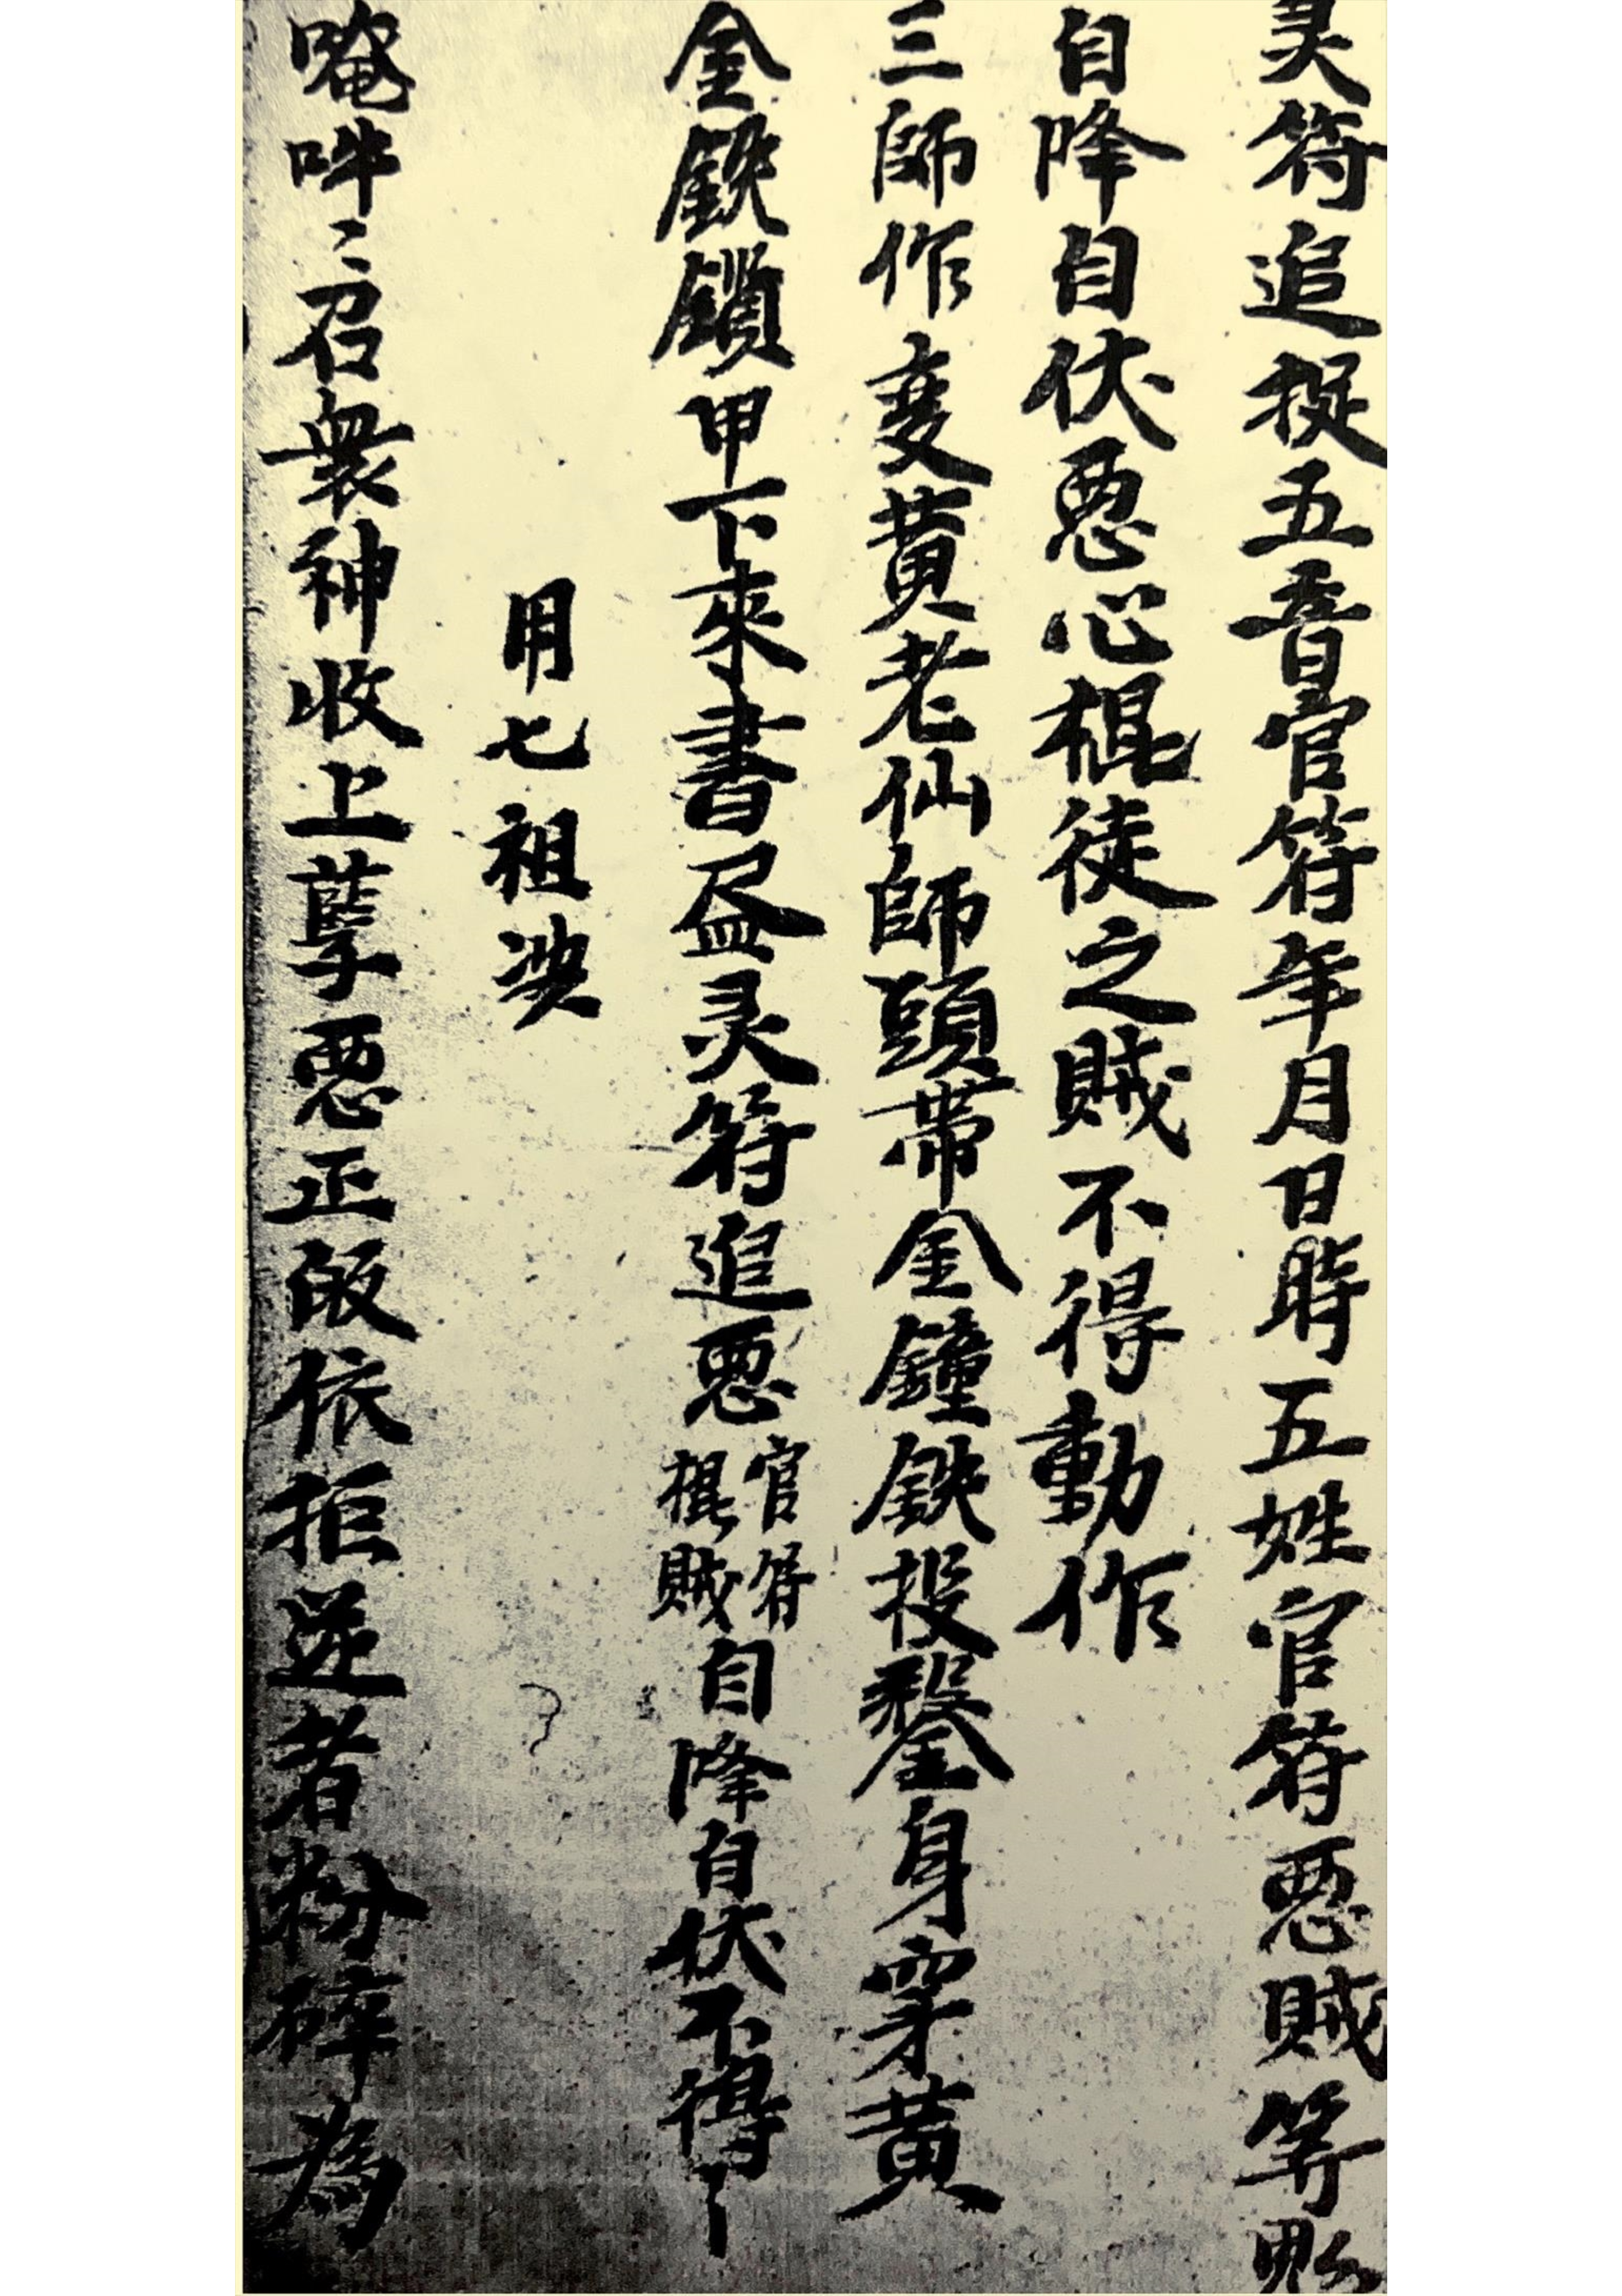 灵符追捉五音官符年月日時五姓官符悪賊等
自降自伏悪心棍徒之賊不得動作
三師作变黄老仙師頭帶金鐘鉄投鍪身穿黄
金鉄鎖甲下來書尽灵符追悪官符棍賊自降自伏不得
用七祖决
唵吽〻召衆神收上孽悪正皈依拒逆者粉碎為